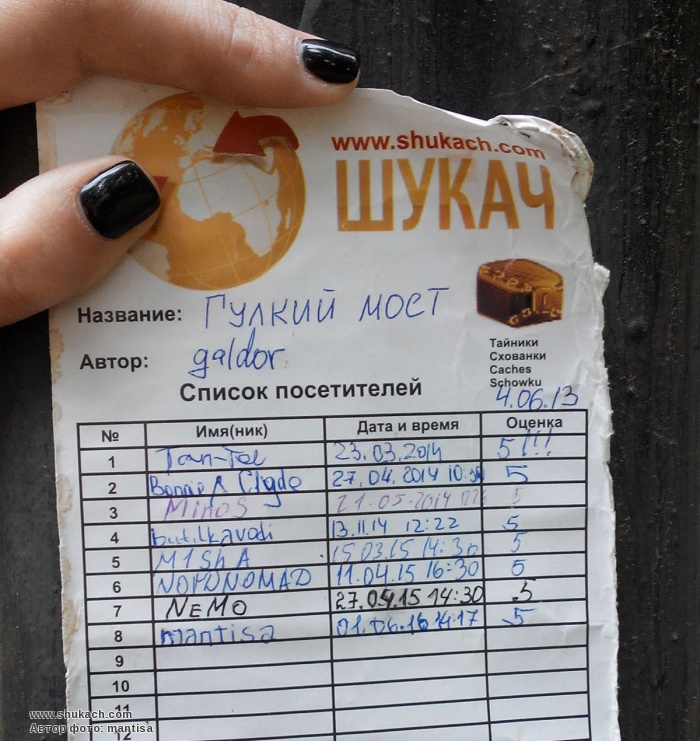 www.shukach.com
ШУКАЧ
Название: Гулкий мост
Автор: galdor
Тайники
Схованки
Caches
Schowku
4.06.13
Список посетителей
№ Имя(ник) Дата и время Оценка
1 Tan-Tol 23.03.2014 5!!!
2 Bonnie & Clyde 27.04.2014 10:30 5
3 Minos 21.05.2014 5
4 butilkavodi 13.11.14 12:22 5
5 M1ShA 15.03.15 14:30 5
6 NOFUNOMAD 11.04.15 16:30 5
7 NeMO 27.04.15 14:30 5
8 mantisa 01.06.16 14:17 5
9
10
11
12
www.shukach.com
Автор фото: mantisa